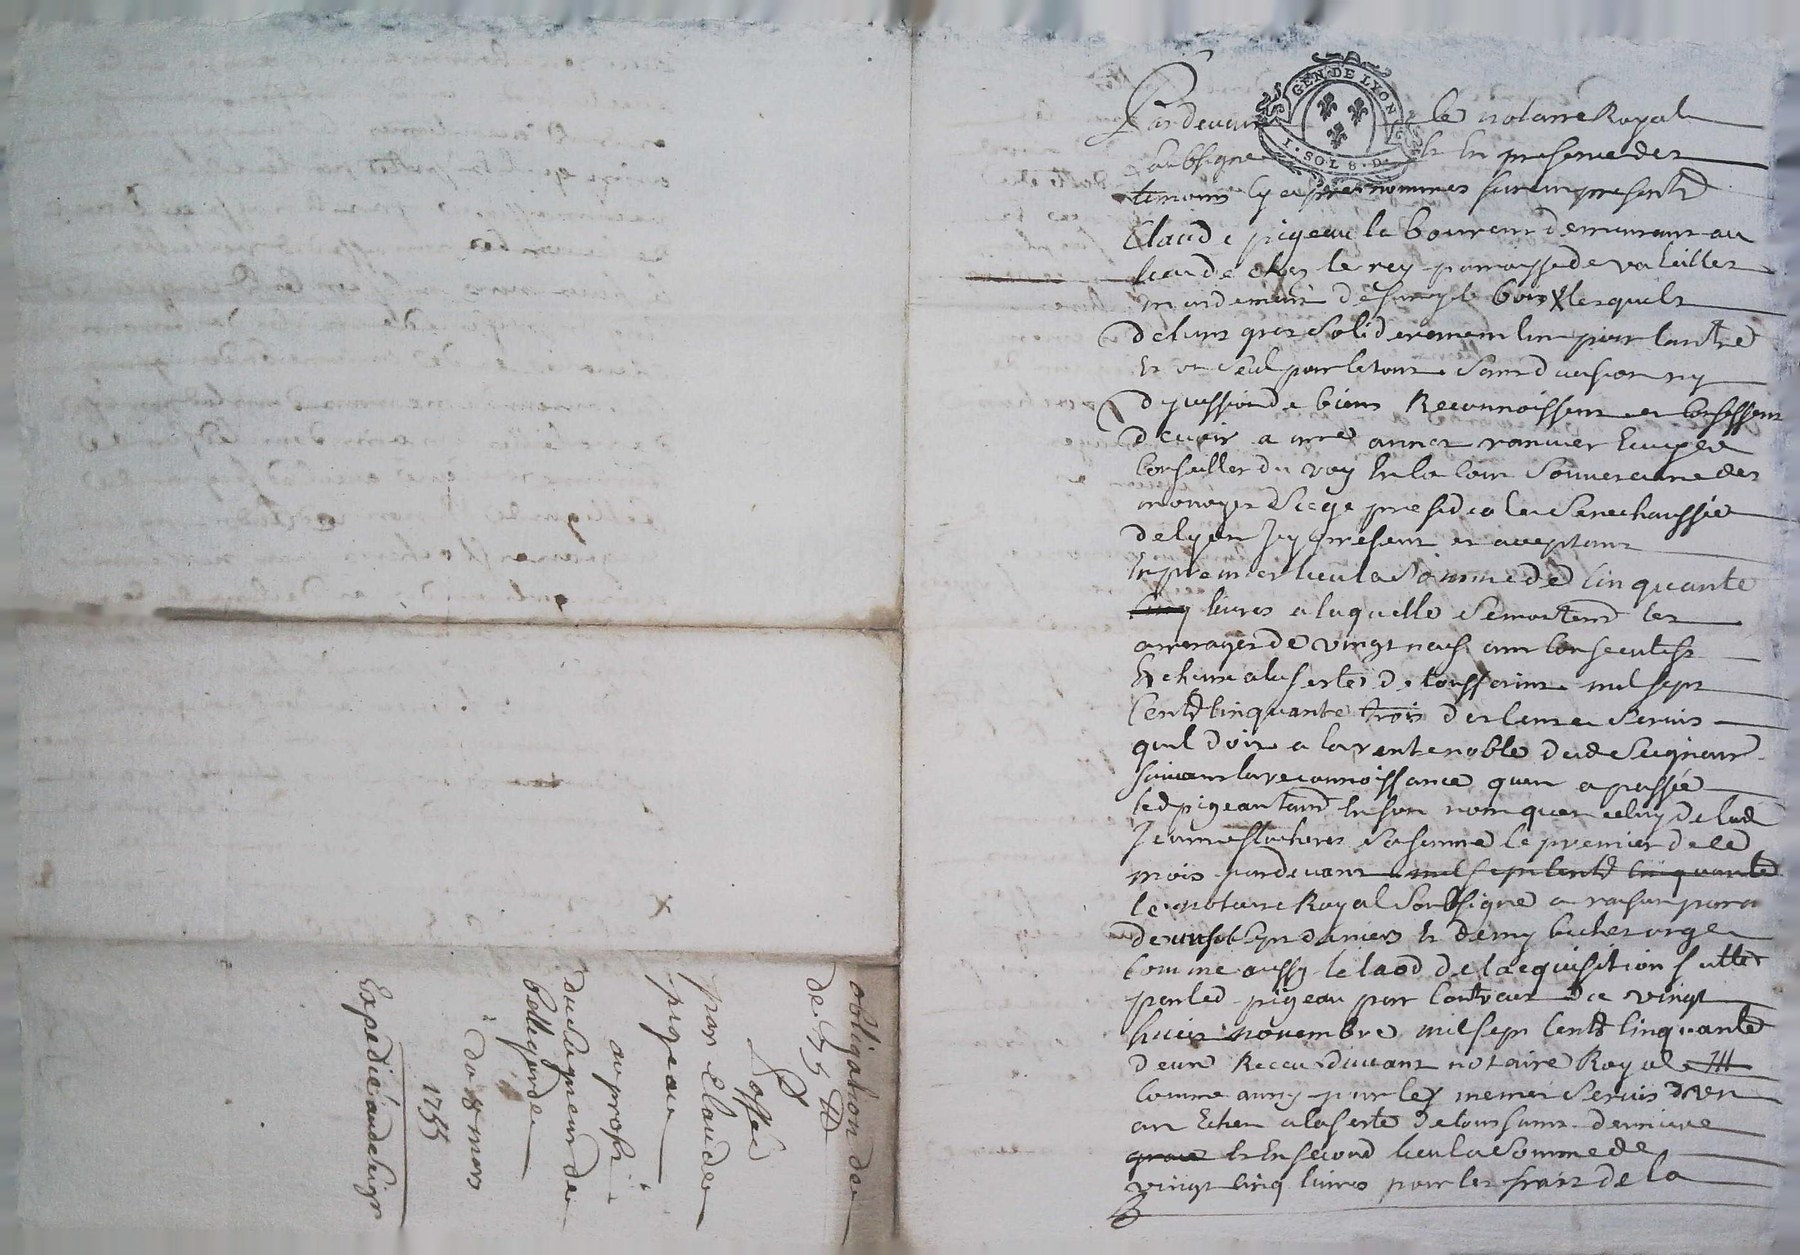 GEN. DE LYON
1. SOL 8. D.
Pardevant le notaire Royal
soubsigne & En presence des
temoins cy apres nommes fut en presente
Claude pigeau laboureur demeurant au
lieu de chez le rey paroisse de valeilles
mandement de le bois lesquels
de leurs gres solidairement lun pour lautre
Et un seul pour le tout sans division ny
de biens Reconnoissent et confessent
devoir a mre annet ranvier Ecuyer
Conseiller du roy En la Cour Souveraine des
monoyes Siege presidial et Senechaussée
de lyon Icy present et acceptant
En premier lieu la Somme de Cinquante
livres a laquelle se montent les
arrerages de vingt neuf ans Consecutifs
Echeue a la feste de toussaint mil sept
Cent Cinquante trois des Cens et Servis
quil doit a la rente noble dud Seigneur
suivant la reconnoissance quen a passée
led pigeau tant En son nom quen celuy de lad
Jeanne sa femme le premier de ce
mois pardevant mil sept Cent Cinquante
le notaire Royal Soubsigne a raison par an
de sept deniers & demy bichet orge
Comme aussy le laod de lacquisition faitte
par led pigeau par Contract du vingt
huit novembre mil sept Cent Cinquante
deux Receu notaire Royal
Comme aussy pour les memes Servis dun
an Echeu a la feste de toussaint derniere
& En second lieu la Somme de
vingt Cinq livres pour les frais de la
obligation de
de 75 #
passée
par Claude
pigeau
au profit
du Seigneur de
bellegarde
du 8 mars
1755
Expedié aud Seigr